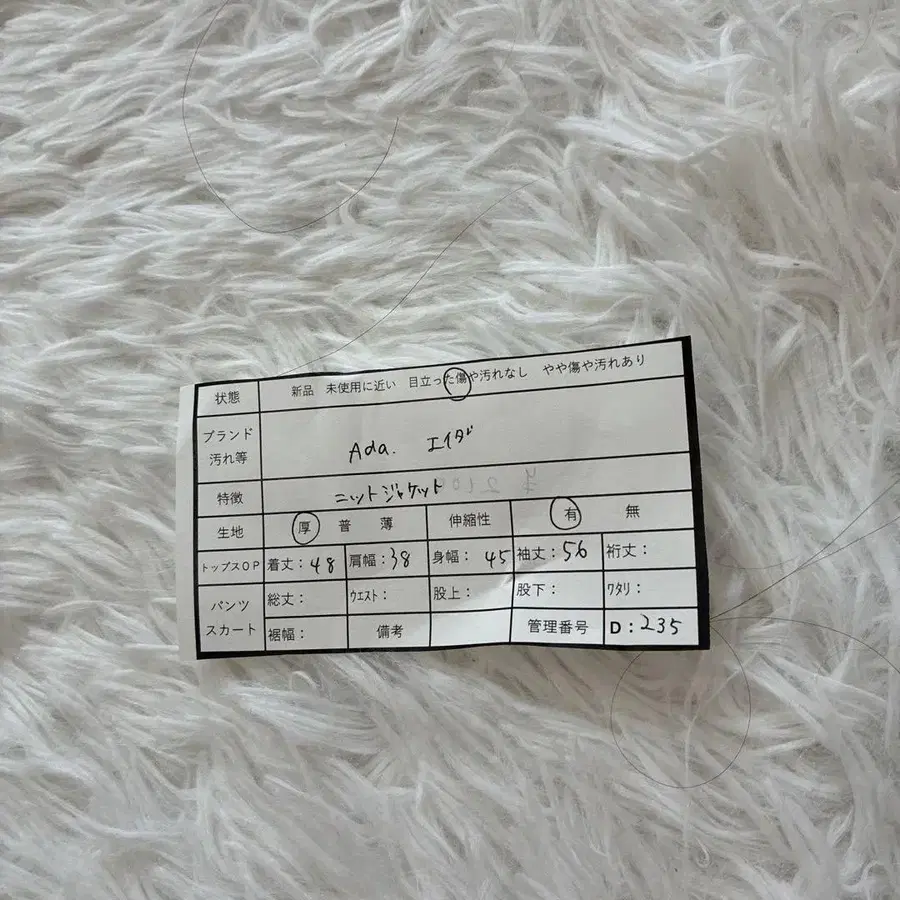 状態 新品 未使用に近い 目立った傷や汚れなし やや傷や汚れあり
ブランド
汚れ等 Ada. エイダ
特徴 ニットジャケット
生地 厚 普 薄 伸縮性 有 無
トップスOP 着丈：48 肩幅：38 身幅：45 袖丈：56 裄丈：
パンツ
スカート 総丈： ウエスト： 股上： 股下： ワタリ：
裾幅： 備考 管理番号 D：235